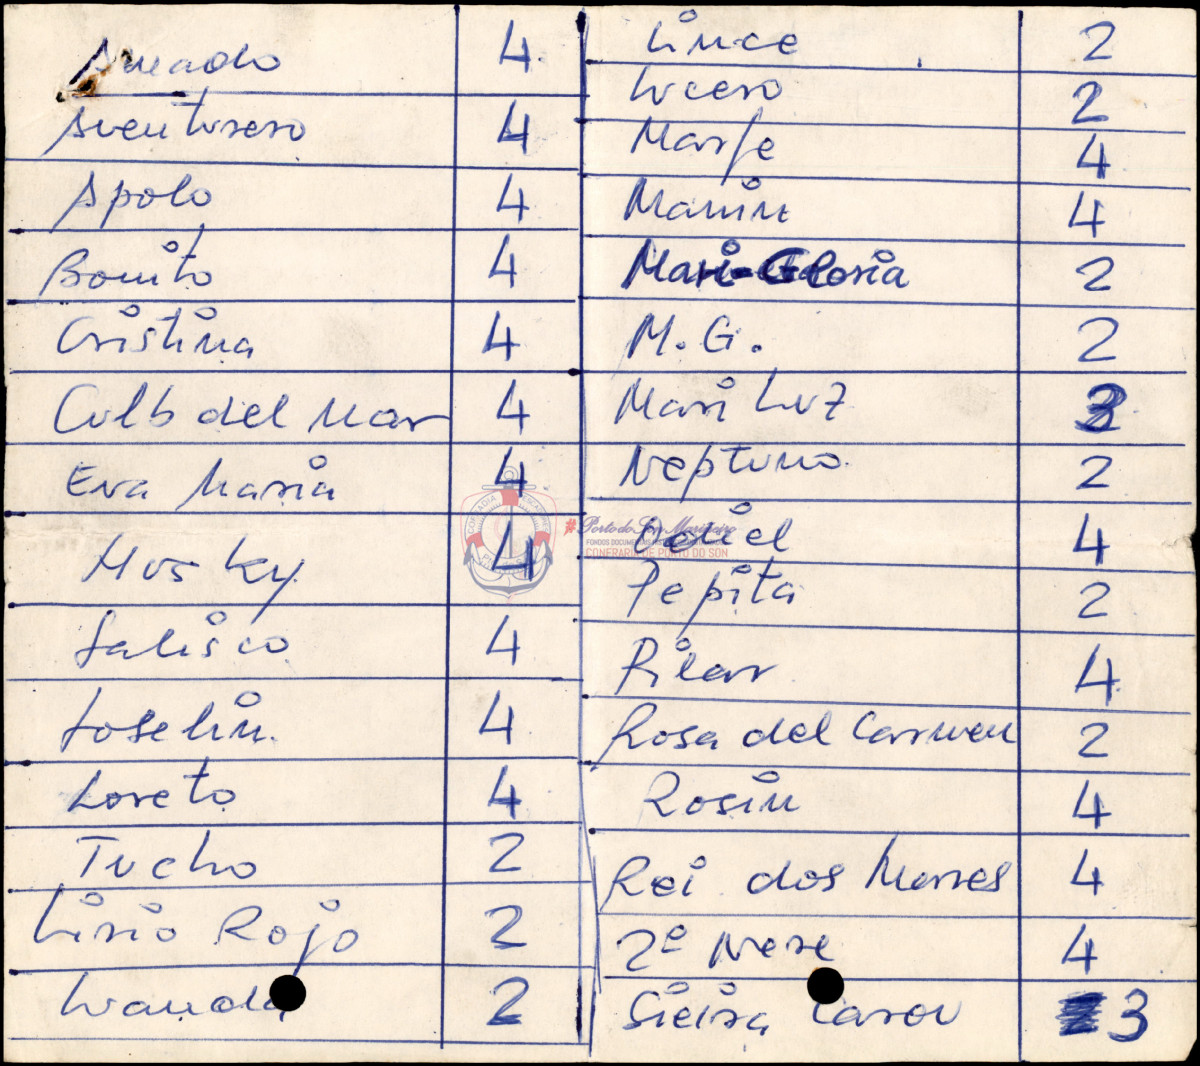 Amado 4
Aventurero 4
Apolo 4
Bonito 4
Cristina 4
Culb del Mar 4
Eva Maria 4
Husky 4
Jalisco 4
Joselin 4
Loreto 4
Tucho 2
Lirio Rojo 2
Lwanda 2
Lince 2
Lucero 2
Marfe 4
Manin 4
Mari-Gloria 2
M.G. 2
Mari Luz 3
Neptuno 2
4
Pepita 2
Pilar 4
Rosa del Carmen 2
Rosin 4
Rei dos Mares 4
2ª Nere 4
Sieira 3
#Porto do Son Mariñeiro
CONFRARÍA DE PORTO DO SON